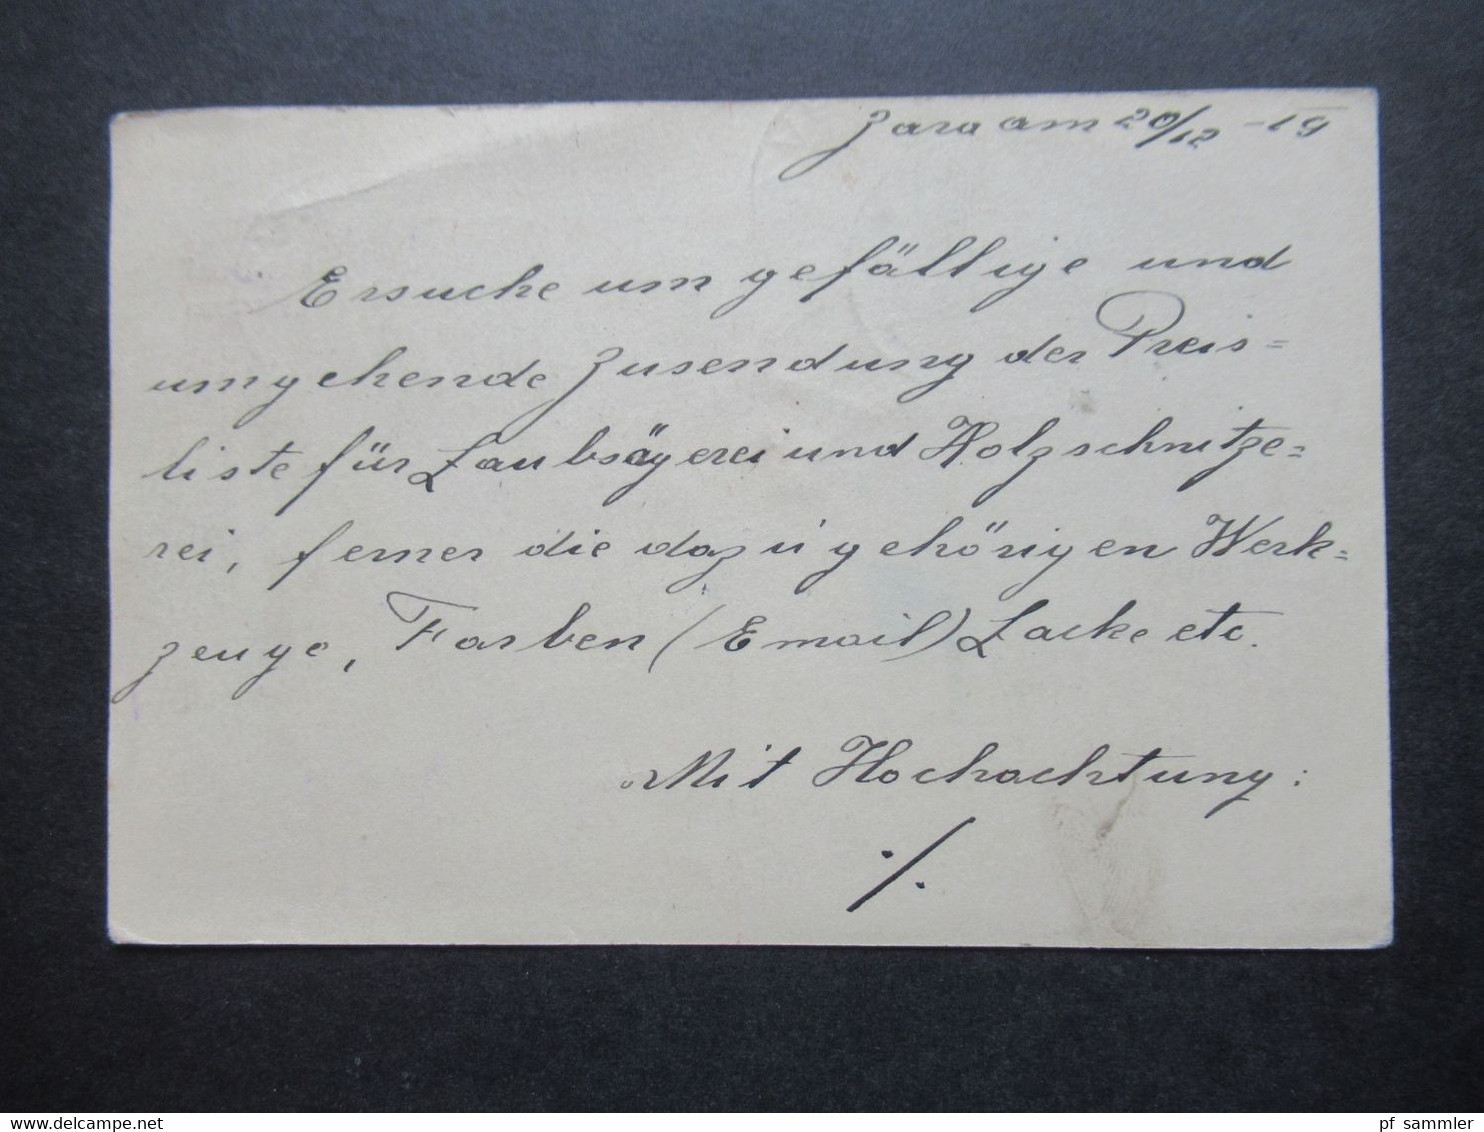 Zara am 20/12 - 19
Ersuche um gefällige und
umgehende Zusendung der Preis=
liste für Laubsägerei und Holzschnitze=
rei, ferner die dazu gehörigen Werk=
zeuge, Farben (Email) Lacke etc.
Mit Hochachtung:
./.
delcampe.net
pf_sammler